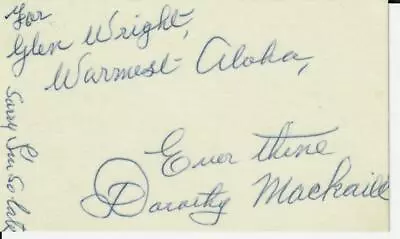 For
Glen Wright,
Warmest Aloha,
Ever thine
Dorothy Mackaill
Sorry I'm so late